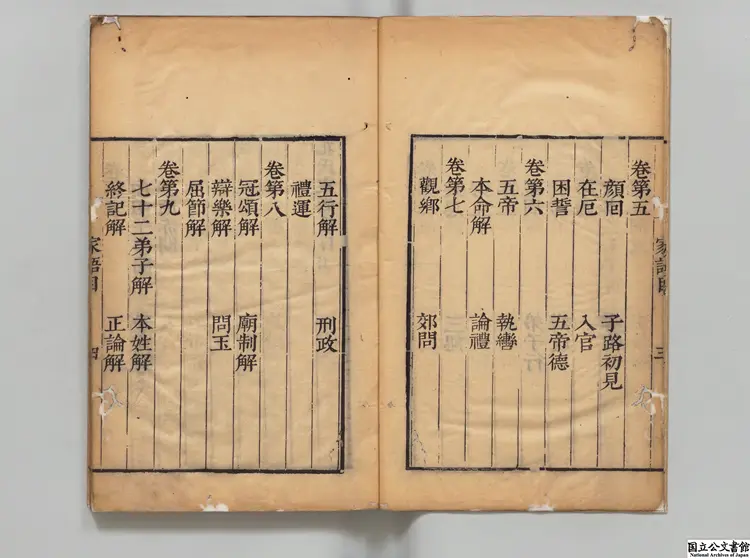 卷第五
顏囘 子路初見
在厄 入官
困誓 五帝德
卷第六
五帝 執轡
本命解 論禮
卷第七
觀鄉 郊問
家語目 三
五行解 刑政
禮運
卷第八
冠頌解 廟制解
辯樂解 問玉
屈節解
卷第九
七十二弟子解 本姓解
終記解 正論解
家語目 四
国立公文書館
National Archives of Japan